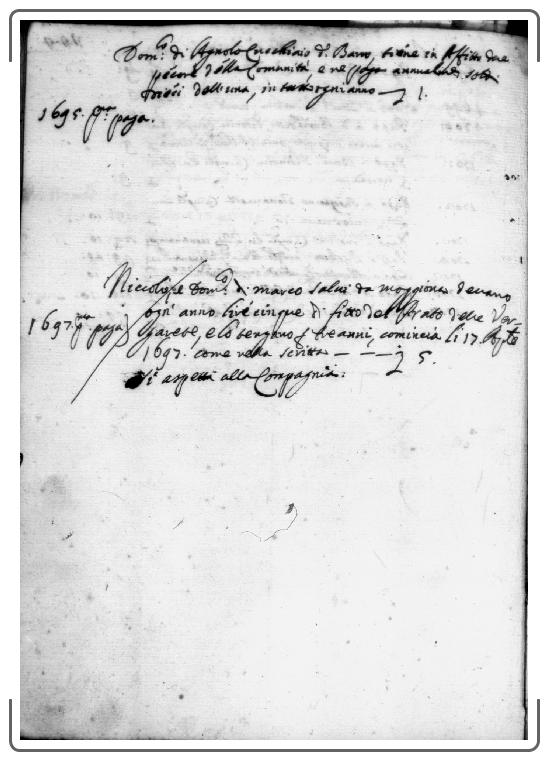 Dom.co di Agnolo Cucchiaio d. Barro, tiene in Affitto due
pecore della Comunità, e ne paga annualm. soldi
dieci dell'una, in tutto ogni anno — 1.
1695. p.ma paga.
Niccolò, e Dom.co di marco salvi da moggiona devano
ogn' anno live cinque di fitto del Prato delle Ver-
1697. p.ma paga
garete, e lo tengano p tre anni, comincia li 17. Ag.te
1697. come nella scritta — — — 5.
Si aspetta alla Compagnia.